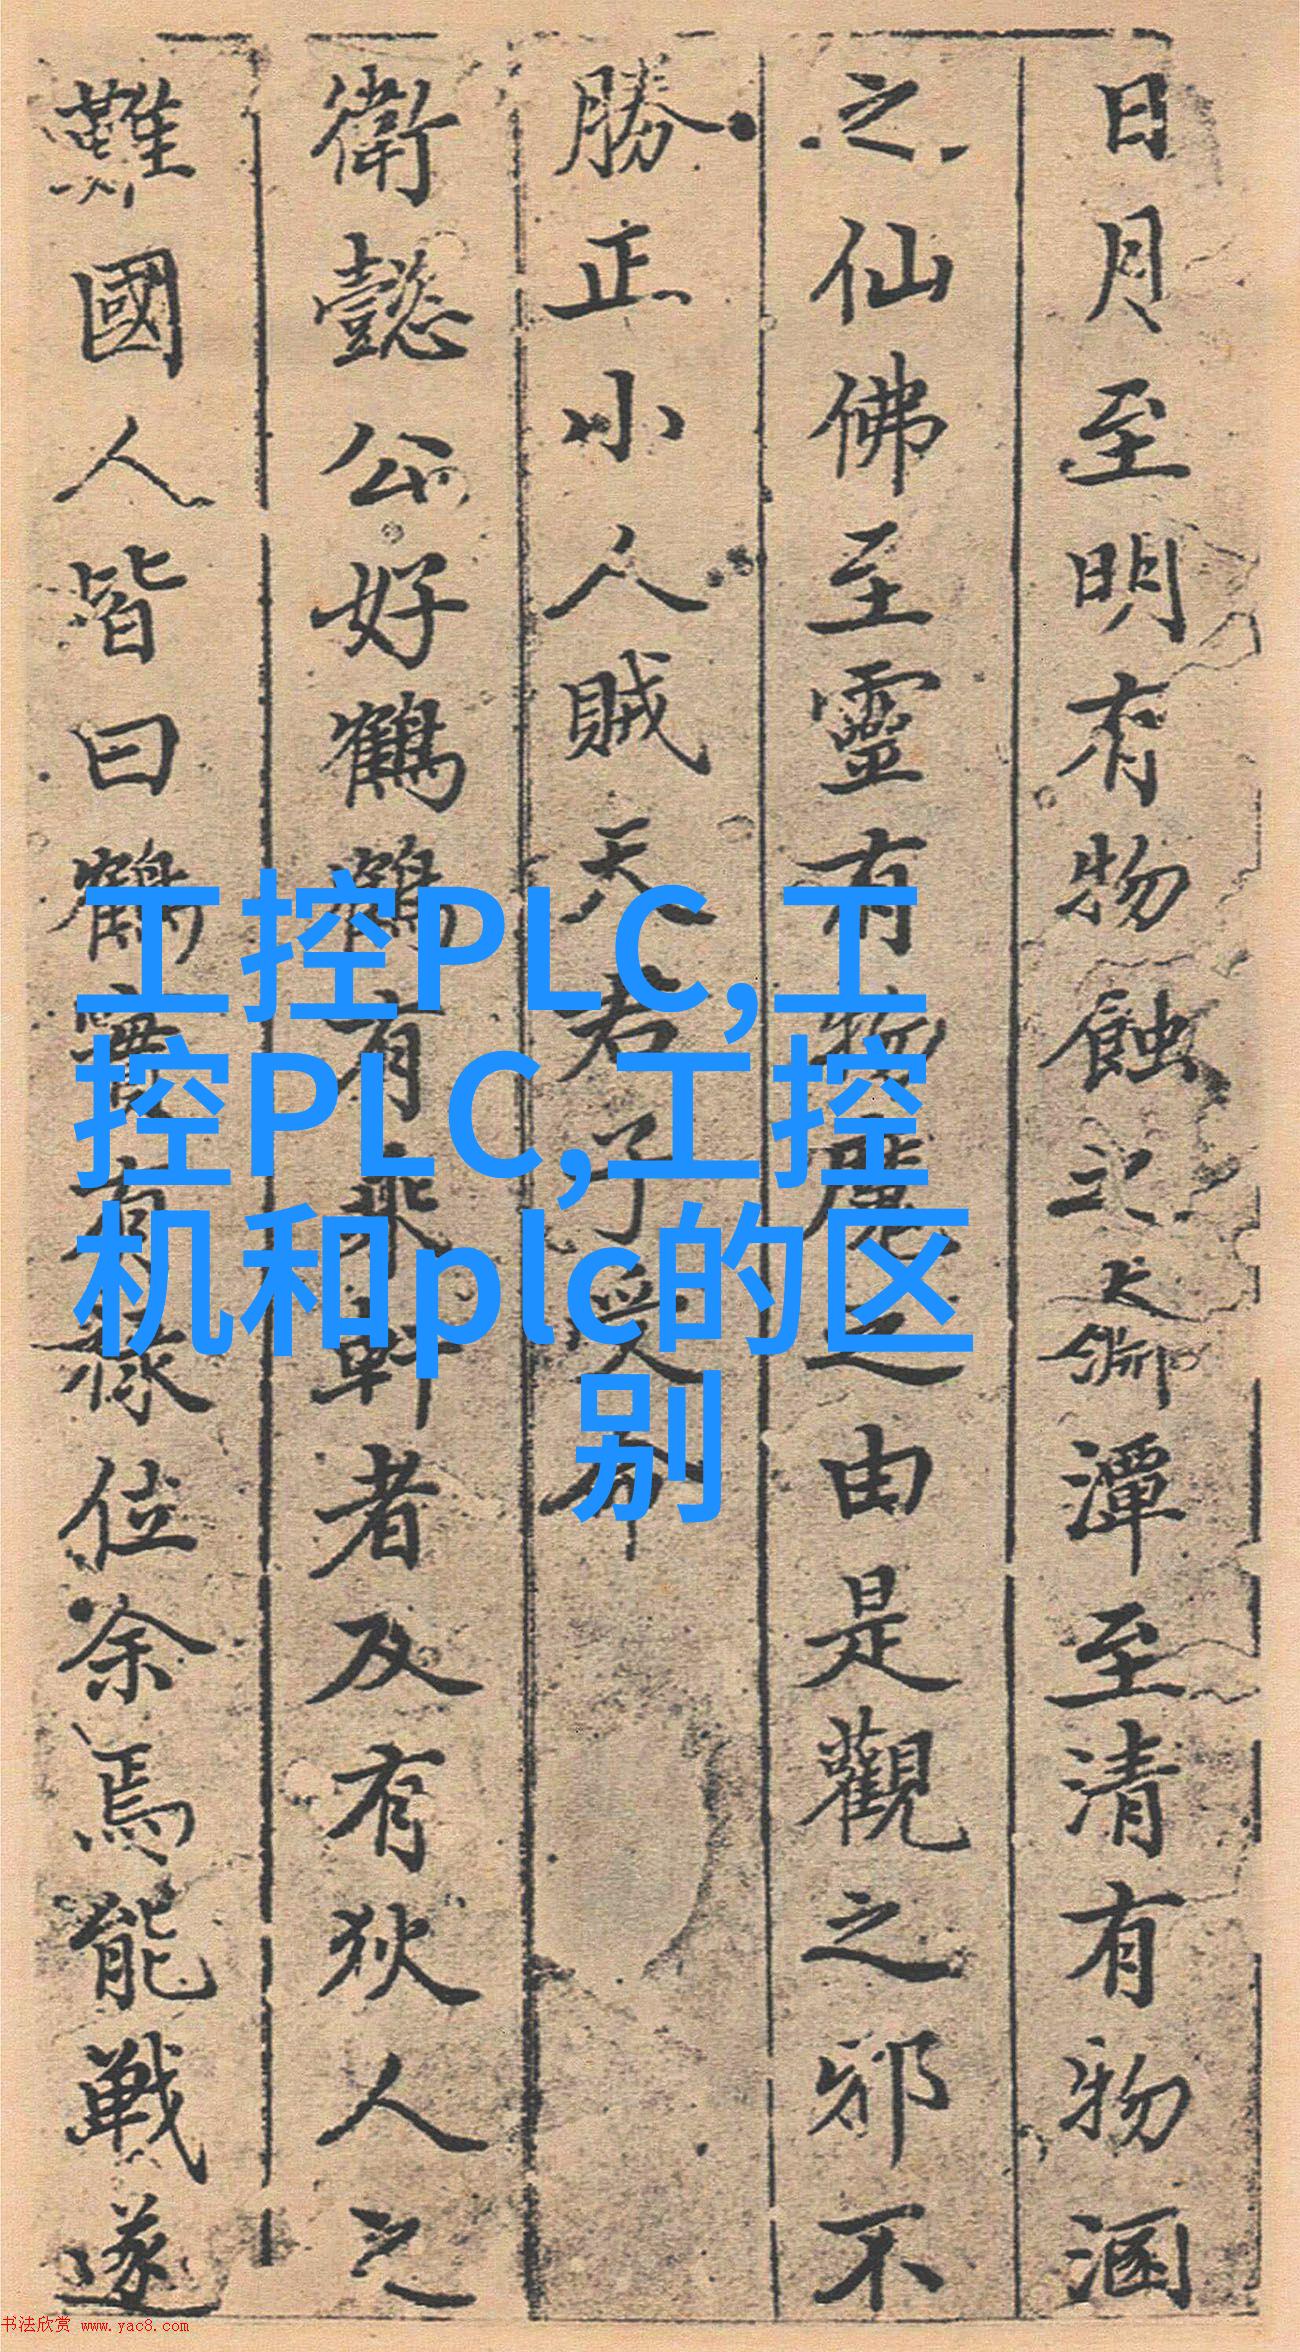 日月至明有物蝕之大潭至清有物涵
之仙佛至靈有物魔之由是觀之邪不
勝正小人賊天君子受命
衛懿公好鶴鶴有乘軒者及有狄人之
難國人皆曰鶴實有祿位余焉能戰遂
工控PLC,工
控PLC,工控
机和plc的区
别
书法欣赏 www.yac8.com